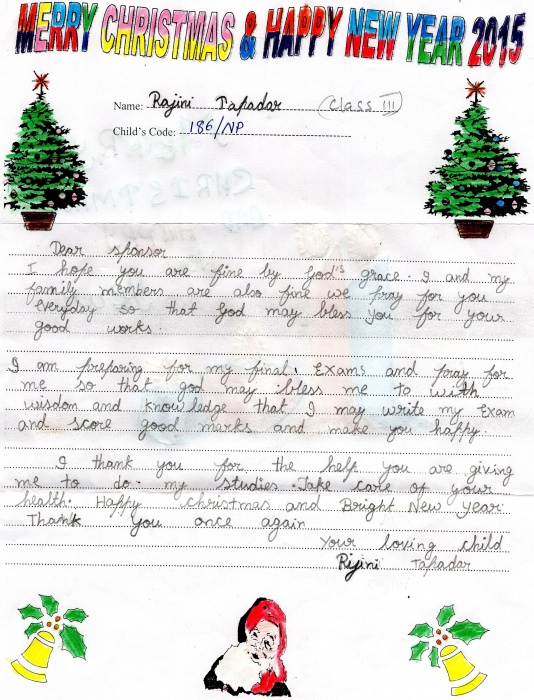 MERRY CHRISTMAS & HAPPY NEW YEAR 2015
Name: Rajini Tapadar (Class III)
Child's Code: 186/NP
Dear sponsor
I hope you are fine by God's grace. I and my
family members are also fine we pray for you
everyday so that God may bless you for your
good works.
I am preparing for my final. Exams and pray for
me so that god may bless me to with
wisdon and knowledge that I may write my Exam
and score good marks and make you happy.
I thank you for the help you are giving
me to do my studies. Take care of your
health. Happy christmas and Bright New Year.
Thank you once again
Your loving child
Rijini Tapadar